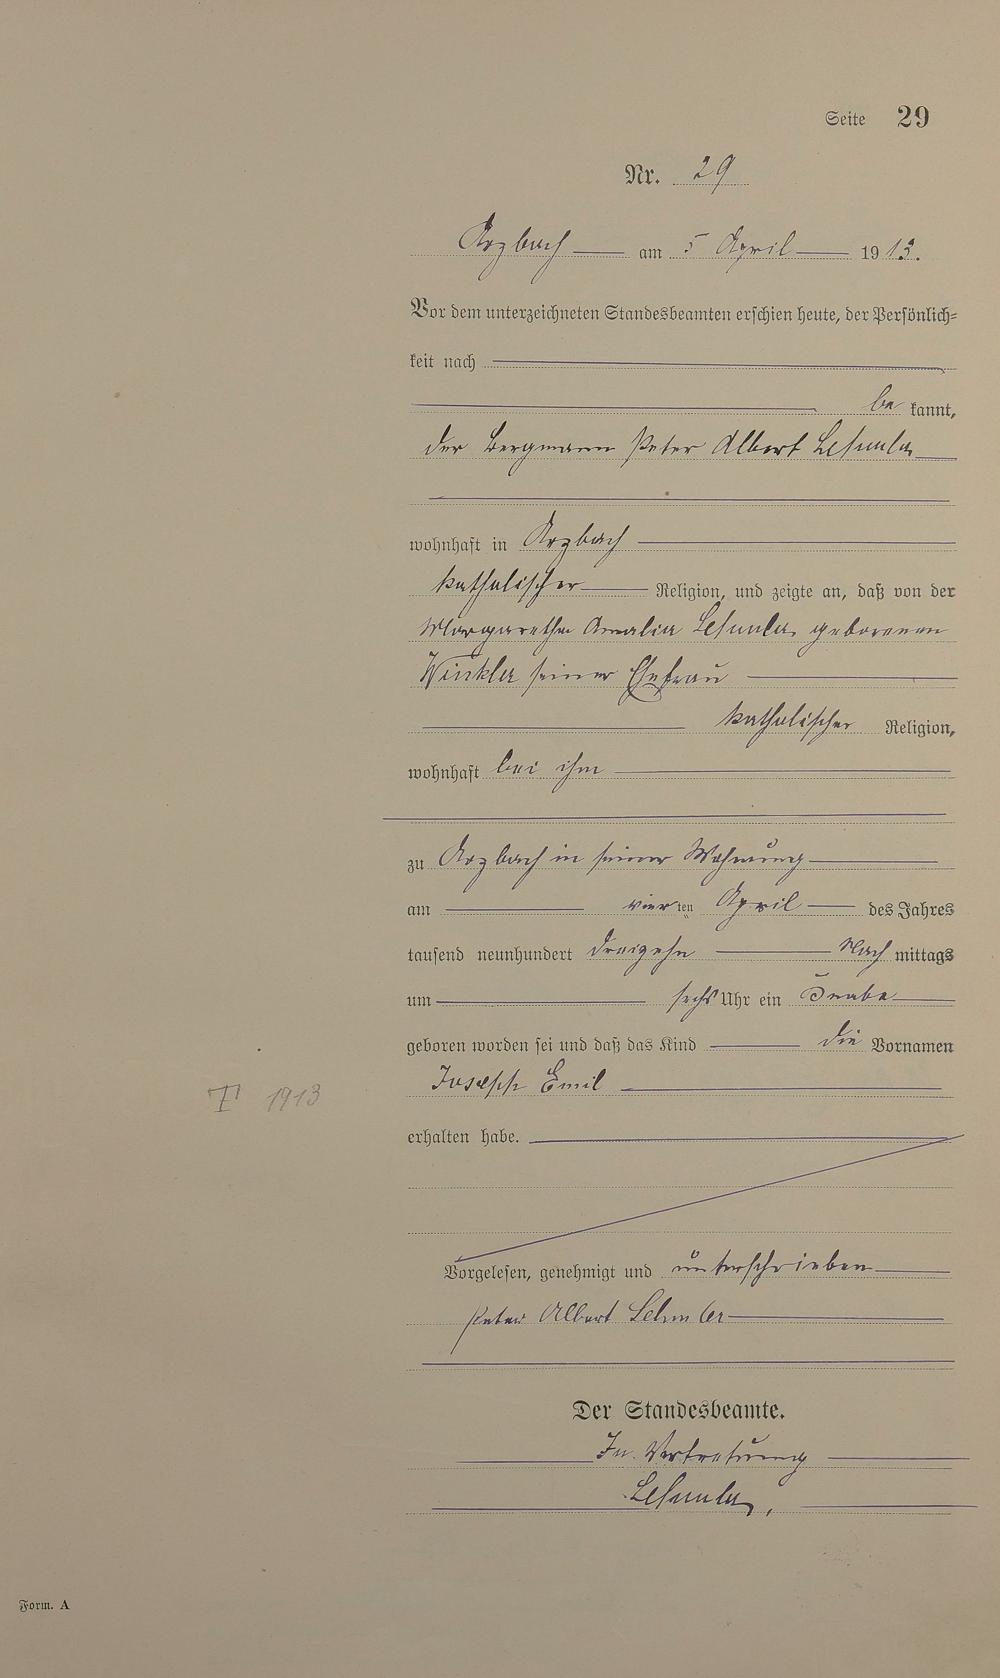 Seite 29
Nr. 29
Arzbach am 5 April 1913.
Vor dem unterzeichneten Standesbeamten erschien heute, der Persönlich=
keit nach
be kannt,
der Bergmann Peter Albert Lehmler
wohnhaft in Arzbach
katholischer Religion, und zeigte an, daß von der
Margaretha Amalia Lehmler geborenen
Winkler seiner Ehefrau
katholischer Religion,
wohnhaft bei ihm
zu Arzbach in seiner Wohnung
am vierten April des Jahres
tausend neunhundert dreizehn Nach mittags
um sechs Uhr ein Knabe
geboren worden sei und daß das Kind die Vornamen
Joseph Emil
1913
erhalten habe.
Vorgelesen, genehmigt und unterschrieben
Peter Albert Lehmler
Der Standesbeamte.
In Vertretung
Lehmler,
Form. A